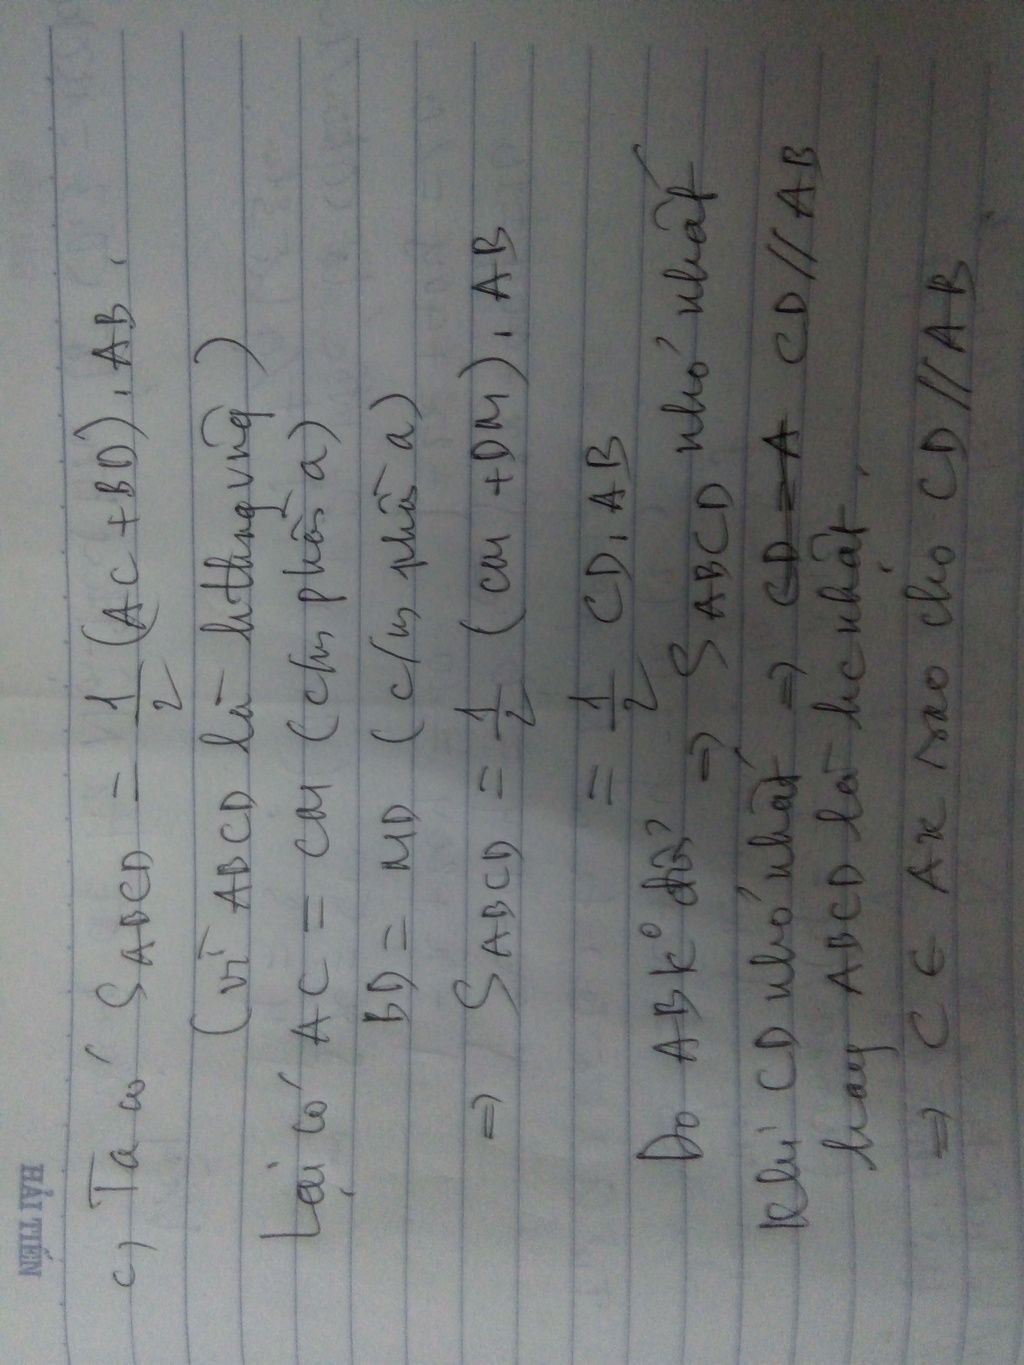 HẢI TIẾN
c) Ta có S ABCD = 1/2 (AC + BD). AB.
(vì ABCD là hthang vuông)
Lại có AC = CM (c/m phần a)
BD = MD (c/m phần a)
⇒ S ABCD = 1/2 (CM + DM). AB
= 1/2 CD. AB
Do AB k° đổi ⇒ S ABCD nhỏ nhất
Khi CD nhỏ nhất ⇒ CD // AB
hay ABCD là hcnhật.
⇒ C ∈ Ax sao cho CD // AB